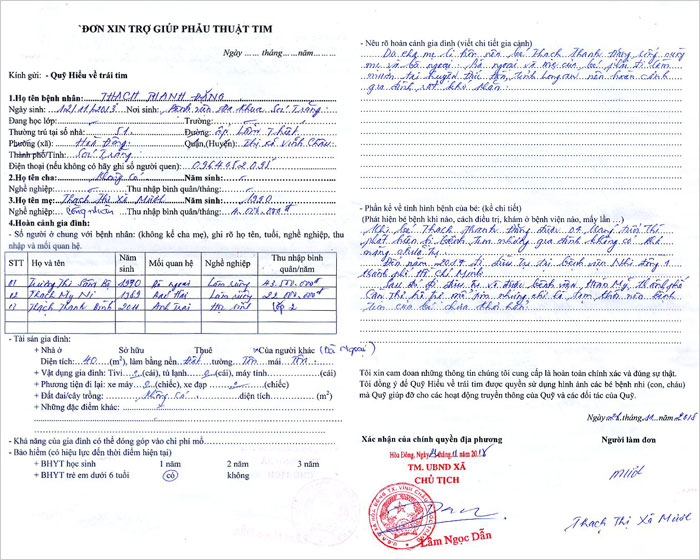 `ĐƠN XIN TRỢ GIÚP PHẪU THUẬT TIM
Ngày ...... tháng......năm.........
Kính gửi: - Quỹ Hiểu về trái tim
1.Họ tên bệnh nhân: THẠCH THANH ĐẰNG
Ngày sinh: 12/11/2013 Nơi sinh: Bệnh viện Đa Khoa Sóc Trăng
Đang học lớp: Trường:
Thường trú tại số nhà: 51 Đường: ấp Lẫm Thiết
Phường (xã): Hoà Đông Quận,(Huyện): Thị xã Vĩnh Châu
Thành phố/Tỉnh: Sóc Trăng
Điện thoại (nếu không có hãy ghi số người quen): 0964952091
2.Họ tên cha: Không Có Năm sinh:
Nghề nghiệp: Thu nhập bình quân/tháng:
3.Họ tên mẹ: Thạch Thị Xà Mươl Năm sinh: 1990
Nghề nghiệp: Công nhân Thu nhập bình quân/tháng: 4.000.000đ
4.Hoàn cảnh gia đình:
- Số người ở chung với bệnh nhân: (không kể cha mẹ), ghi rõ họ tên, tuổi, nghề nghiệp, thu nhập và mối quan hệ.
STT Họ và tên Năm sinh Mối quan hệ Nghề nghiệp Thu nhập bình quân/năm
01 Trương Thị 1970 Bà ngoại Làm ruộng
02 Thạch My Ni 1969 Làm ruộng
03 Thạch Thanh Bình 2011 Anh trai Học sinh lớp 2
- Tài sản gia đình:
+ Nhà ở Sở hữu Thuê Của người khác (Bà Ngoại)
Diện tích: 40 (m²), làm bằng nền: Đất tường: Tôn mái: Tôn
+ Vật dụng gia đình: Tivi (cái), tủ lạnh (cái), máy tính (cái)
+ Phương tiện đi lại: xe máy (chiếc), xe đạp (chiếc)
+ Đất đai/cây trồng: Không Có diện tích (m²)
+ Những đặc điểm khác:
- Khả năng của gia đình có thể đóng góp vào chi phí mổ
- Bảo hiểm (có hiệu lực đến thời điểm hiện tại)
+ BHYT học sinh 1 năm 2 năm 3 năm
+ BHYT trẻ em dưới 6 tuổi có không
- Nêu rõ hoàn cảnh gia đình (viết chi tiết gia cảnh)
Do cha mẹ li tiên nên bé Thạch Thanh Đằng sống cùng
mẹ và bà ngoại. Bà ngoại và mẹ của bé phải đi làm
mướn tại huyện Đức Hoà, tỉnh Long an nên hoàn cảnh
gia đình rất khó khăn.
- Phần kể về tình hình bệnh của bé: (kể chi tiết)
(Phát hiện bé bệnh khi nào, cách điều trị, khám ở bệnh viện nào, mấy lần ...)
Khi bé Thạch Thanh Đằng được 04 tháng tuổi thì
phát hiện bị bệnh tim nhưng gia đình không có khả
năng chữa trị.
Đến năm 2014 đi điều trị tại bệnh viện Nhi đồng 1
thành phố Hồ Chí Minh.
Sau đó đi điều trị ở bệnh viện Hoàn Mỹ, thành phố
Cần Thơ
tim của bé chưa khỏi hẳn.
Tôi xin cam đoan những thông tin chúng tôi cung cấp là hoàn toàn chính xác và đúng sự thật.
Tôi đồng ý để Quỹ Hiểu về trái tim được quyền sử dụng hình ảnh các bé bệnh nhi (con, cháu) mà Quỹ giúp đỡ cho các hoạt động truyền thông của Quỹ và các đối tác của Quỹ.
Ngày 28 tháng 11 năm 2018
Xác nhận của chính quyền địa phương Người làm đơn
Hòa Đông, ngày 11 năm 2018
TM. UBND XÃ
CHỦ TỊCH
Lâm Ngọc Dẫn
Mươl
Thạch Thị Xà Mươl